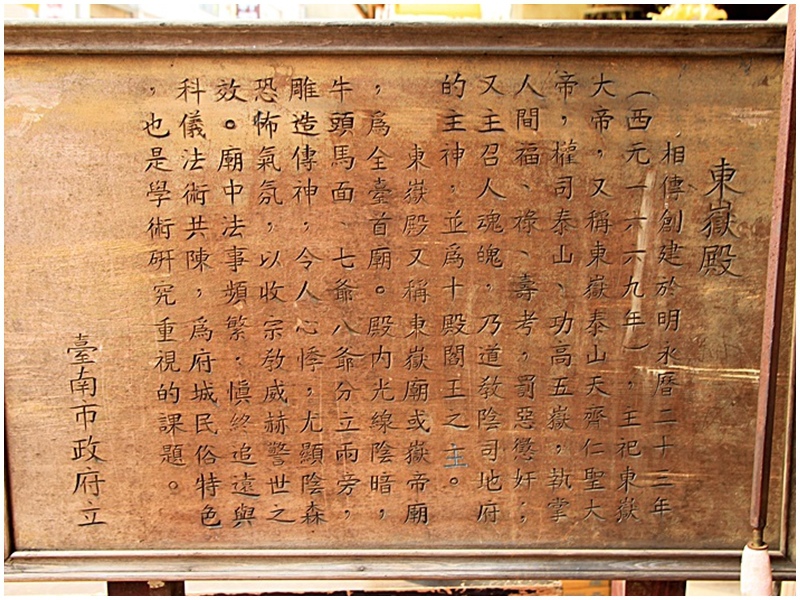 東嶽殿
相傳創建於明永曆二十三年
（西元一六六九年），主祀東嶽
大帝，又稱東嶽泰山天齊仁聖大
帝，權司泰山、功高五嶽，執掌
人間福、祿、壽考，罰惡懲奸；
又主召人魂魄，乃道教陰司地府
的主神，並為十殿閻王之主。
東嶽殿又稱東嶽廟或嶽帝廟
，為全臺首廟。殿內光線陰暗，
牛頭馬面、七爺八爺分立兩旁，
雕造傳神，令人心悸，尤顯陰森
恐怖氣氛，以收宗教威赫警世之
效。廟中法事頻繁，慎終追遠與
科儀法術共陳，為府城民俗特色
，也是學術研究重視的課題。
臺南市政府立